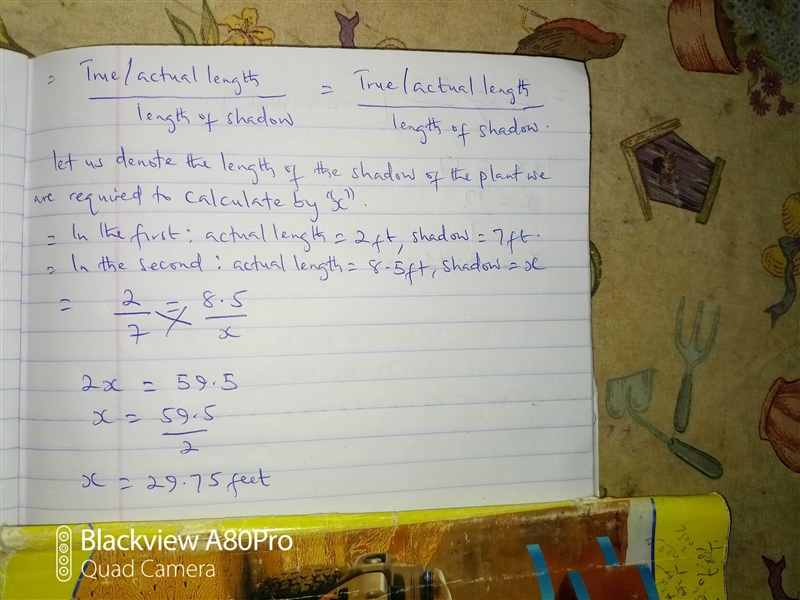 = True/actual length = True/actual length
length of shadow length of shadow.
let us denote the length of the shadow of the plant we
are required to calculate by "x".
= In the first: actual length = 2ft, shadow = 7ft.
= In the second: actual length = 8.5ft, shadow = x
= 2/7 = 8.5/x
2x = 59.5
x = 59.5
2
x = 29.75 feet
Blackview A80Pro
Quad Camera